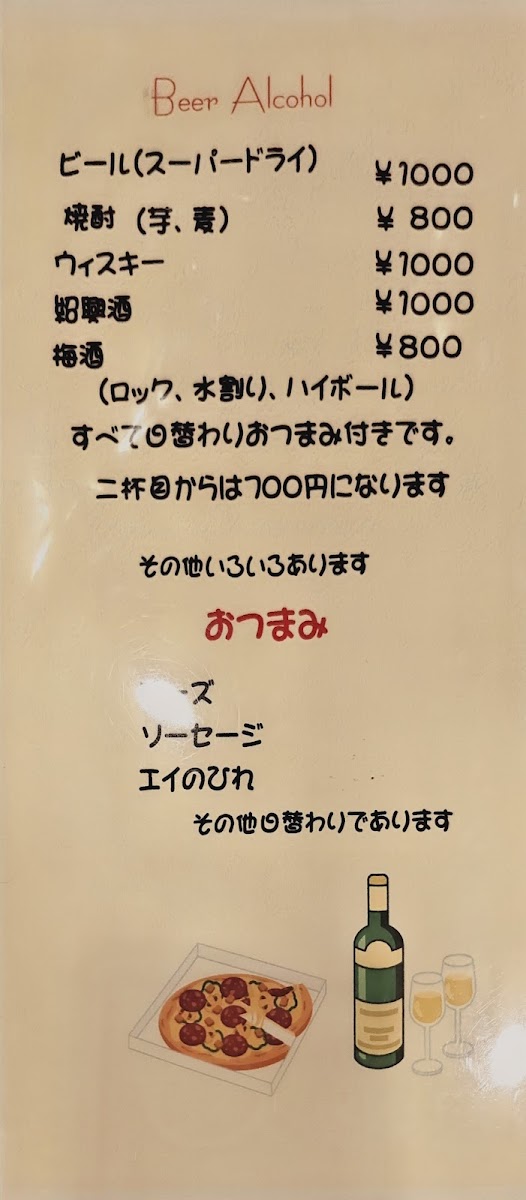 Beer Alcohol
ビール(スーパードライ) ¥1000
焼酎 (芋、麦) ¥ 800
ウィスキー ¥1000
紹興酒 ¥1000
梅酒 ¥800
(ロック、水割り、ハイボール)
すべて日替わりおつまみ付きです。
二杯目からは700円になります
その他いろいろあります
おつまみ
ソーセージ
エイのひれ
その他日替わりであります